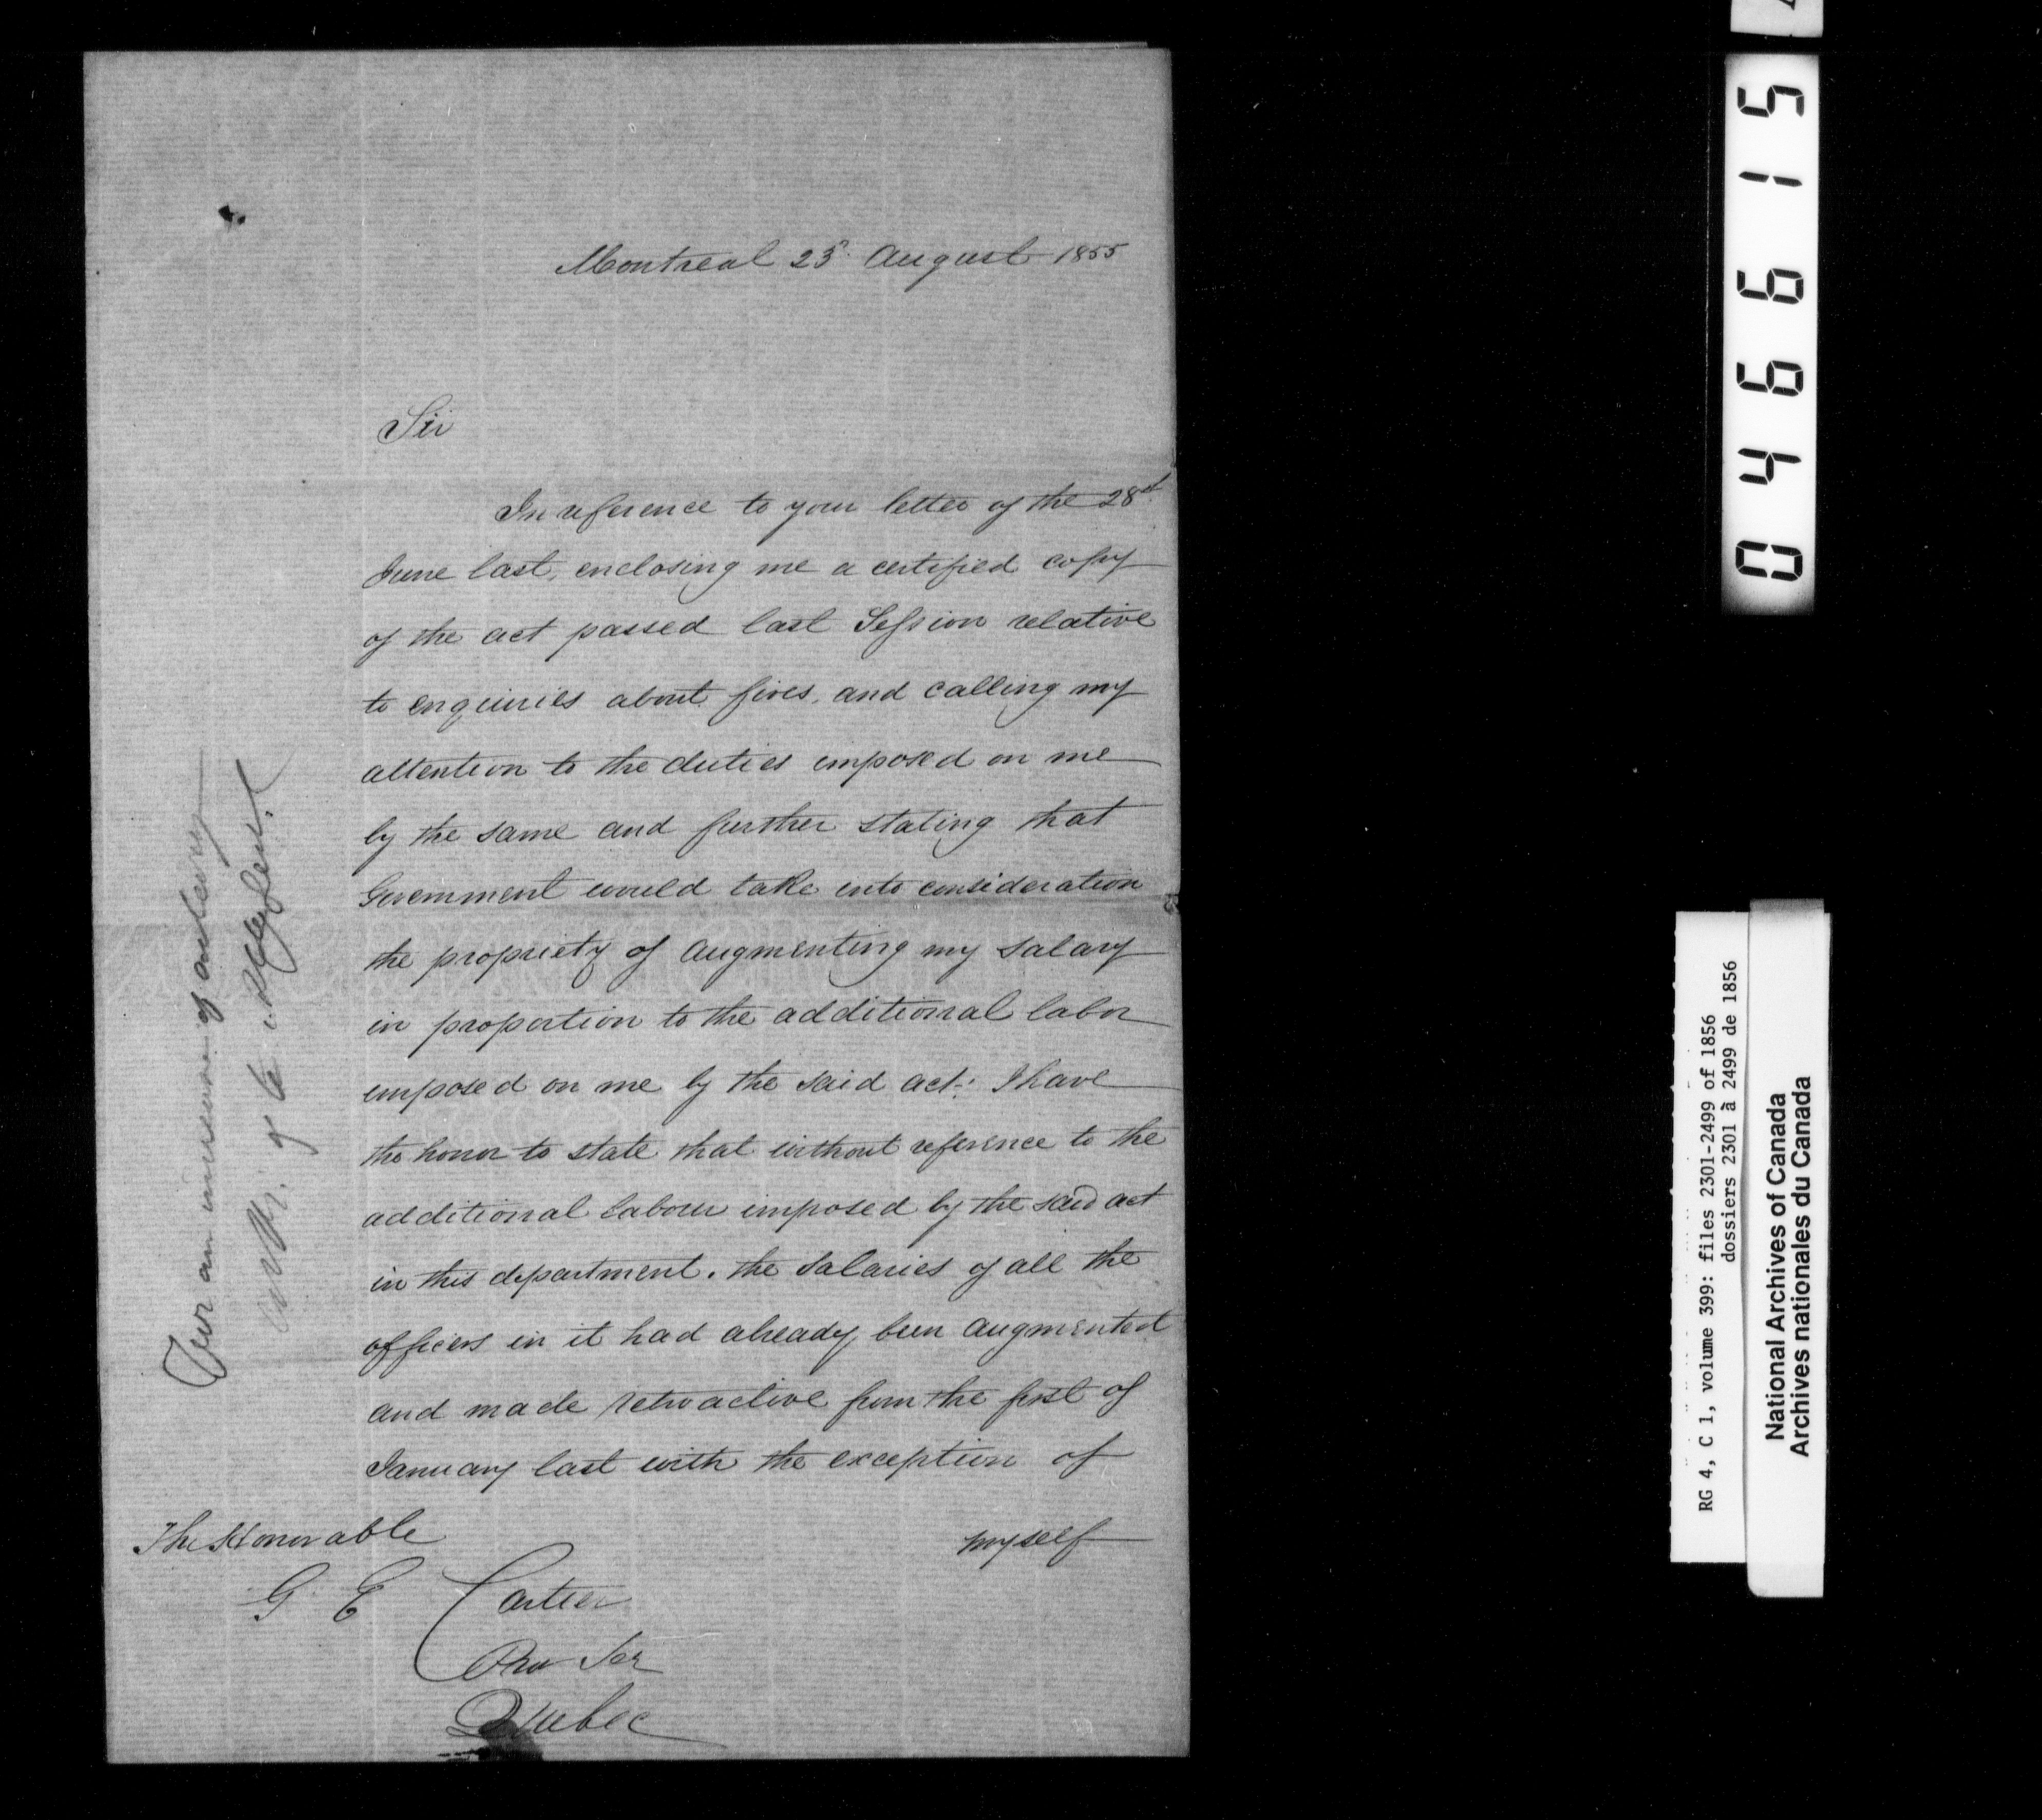 Montreal 25 August 1855
Sir
In reference to your letter of the 28th
June last, enclosing me a certified copy
of the act passed last Session relative
to enquiries about fires, and calling my
attention to the duties imposed on me
by the same and further stating that
Government would take into consideration
the propriety of augmenting my salary
in proportion to the additional labor
imposed on me by the said act: I have
the honor to state that without reference to the
additional labour imposed by the said act
in this department. the salaries of all the
officers in it had already been augmented
and made retroactive from the first of
January last with the exception of
myself
The Honorable
G E Cartier
Pro Sec
Quebec
an increase of
04661 5
RG 4, C 1, volume 399: files 2301-2499 of 1856
dossiers 2301 à 2499 de 1856
National Archives of Canada
Archives nationales du Canada